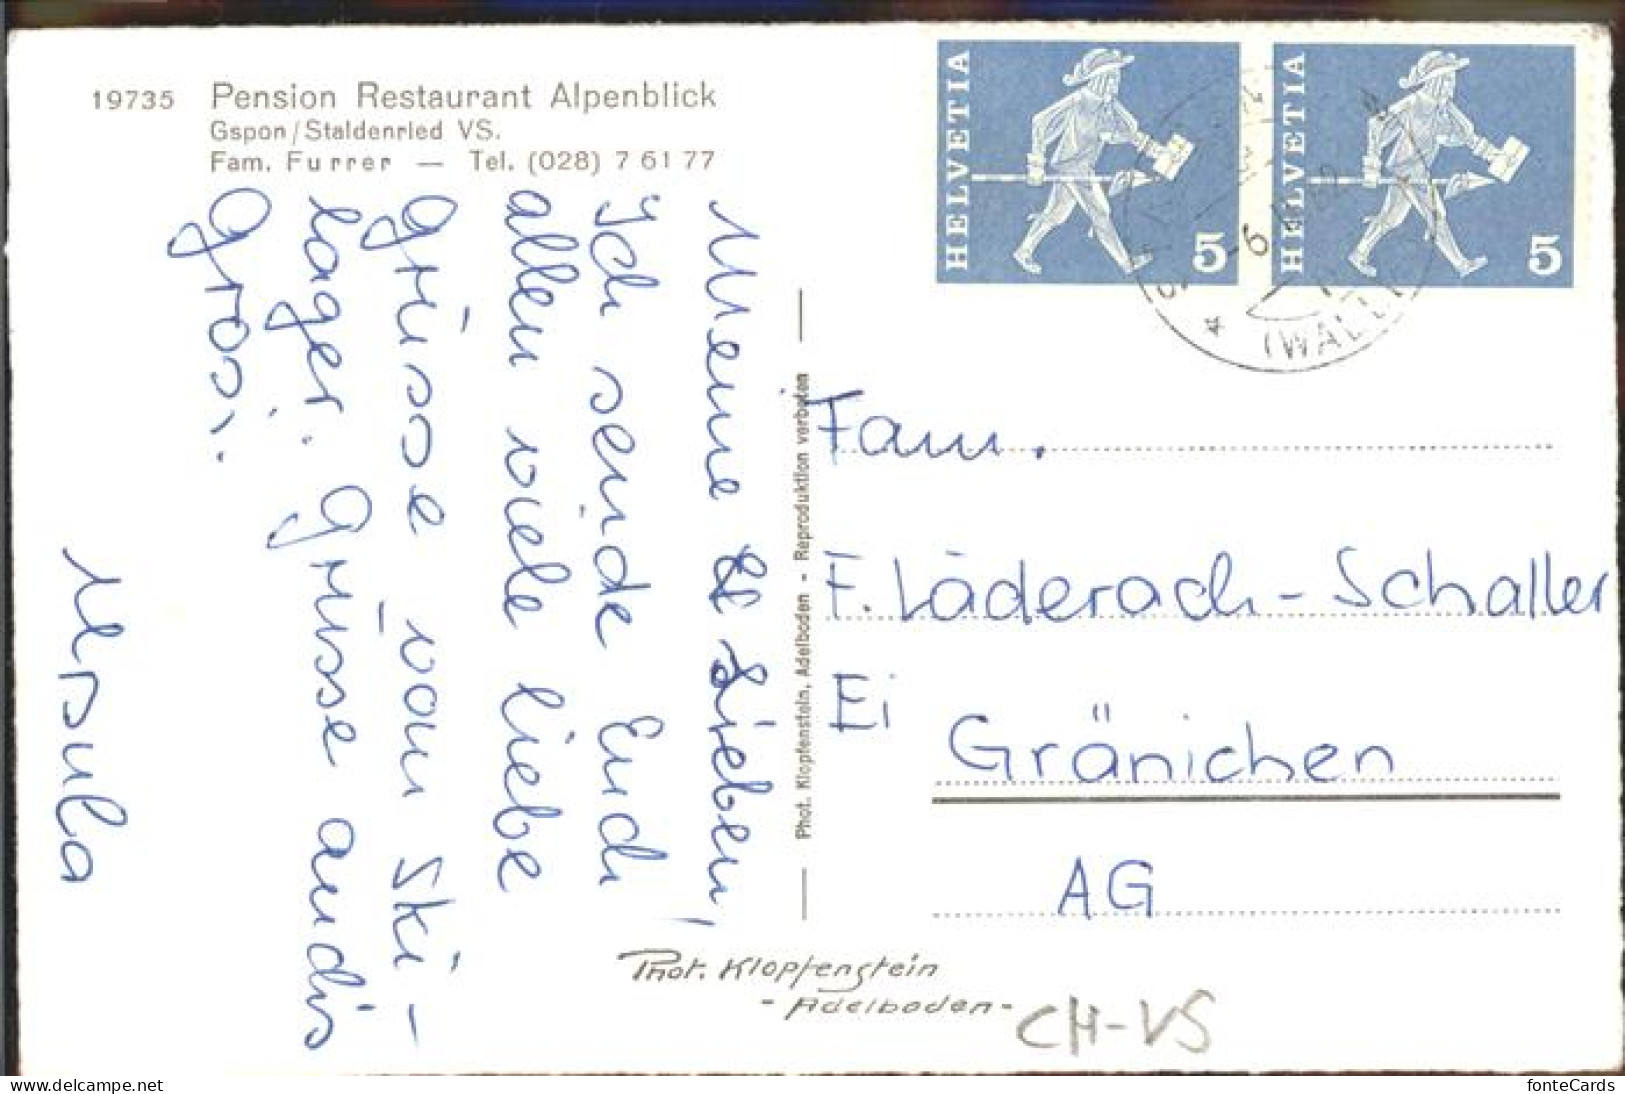 19735 Pension Restaurant Alpenblick
Gspon/Staldenried VS.
Fam. Furrer — Tel. (028) 7 61 77
HELVETIA 5
HELVETIA 5
-6.
(WALLIS)
Meine Lieben,
Ich sende Euch
allen viele liebe
Grüsse vom Ski-
lager. Grüsse auch's
Grosi.
Ursula
Phot. Klopfenstein, Adelboden - Reproduktion verboten
Fam.
F. Läderach-Schaller
Ei
Gränichen
AG
Phot. Klopfenstein
- Adelboden -
CH-VS
www.delcampe.net
fonteCards